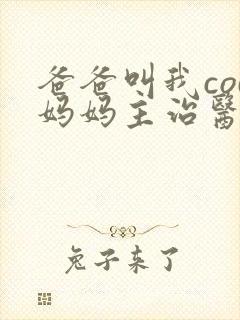 爸爸叫我co
妈妈主治醫
兔子来了